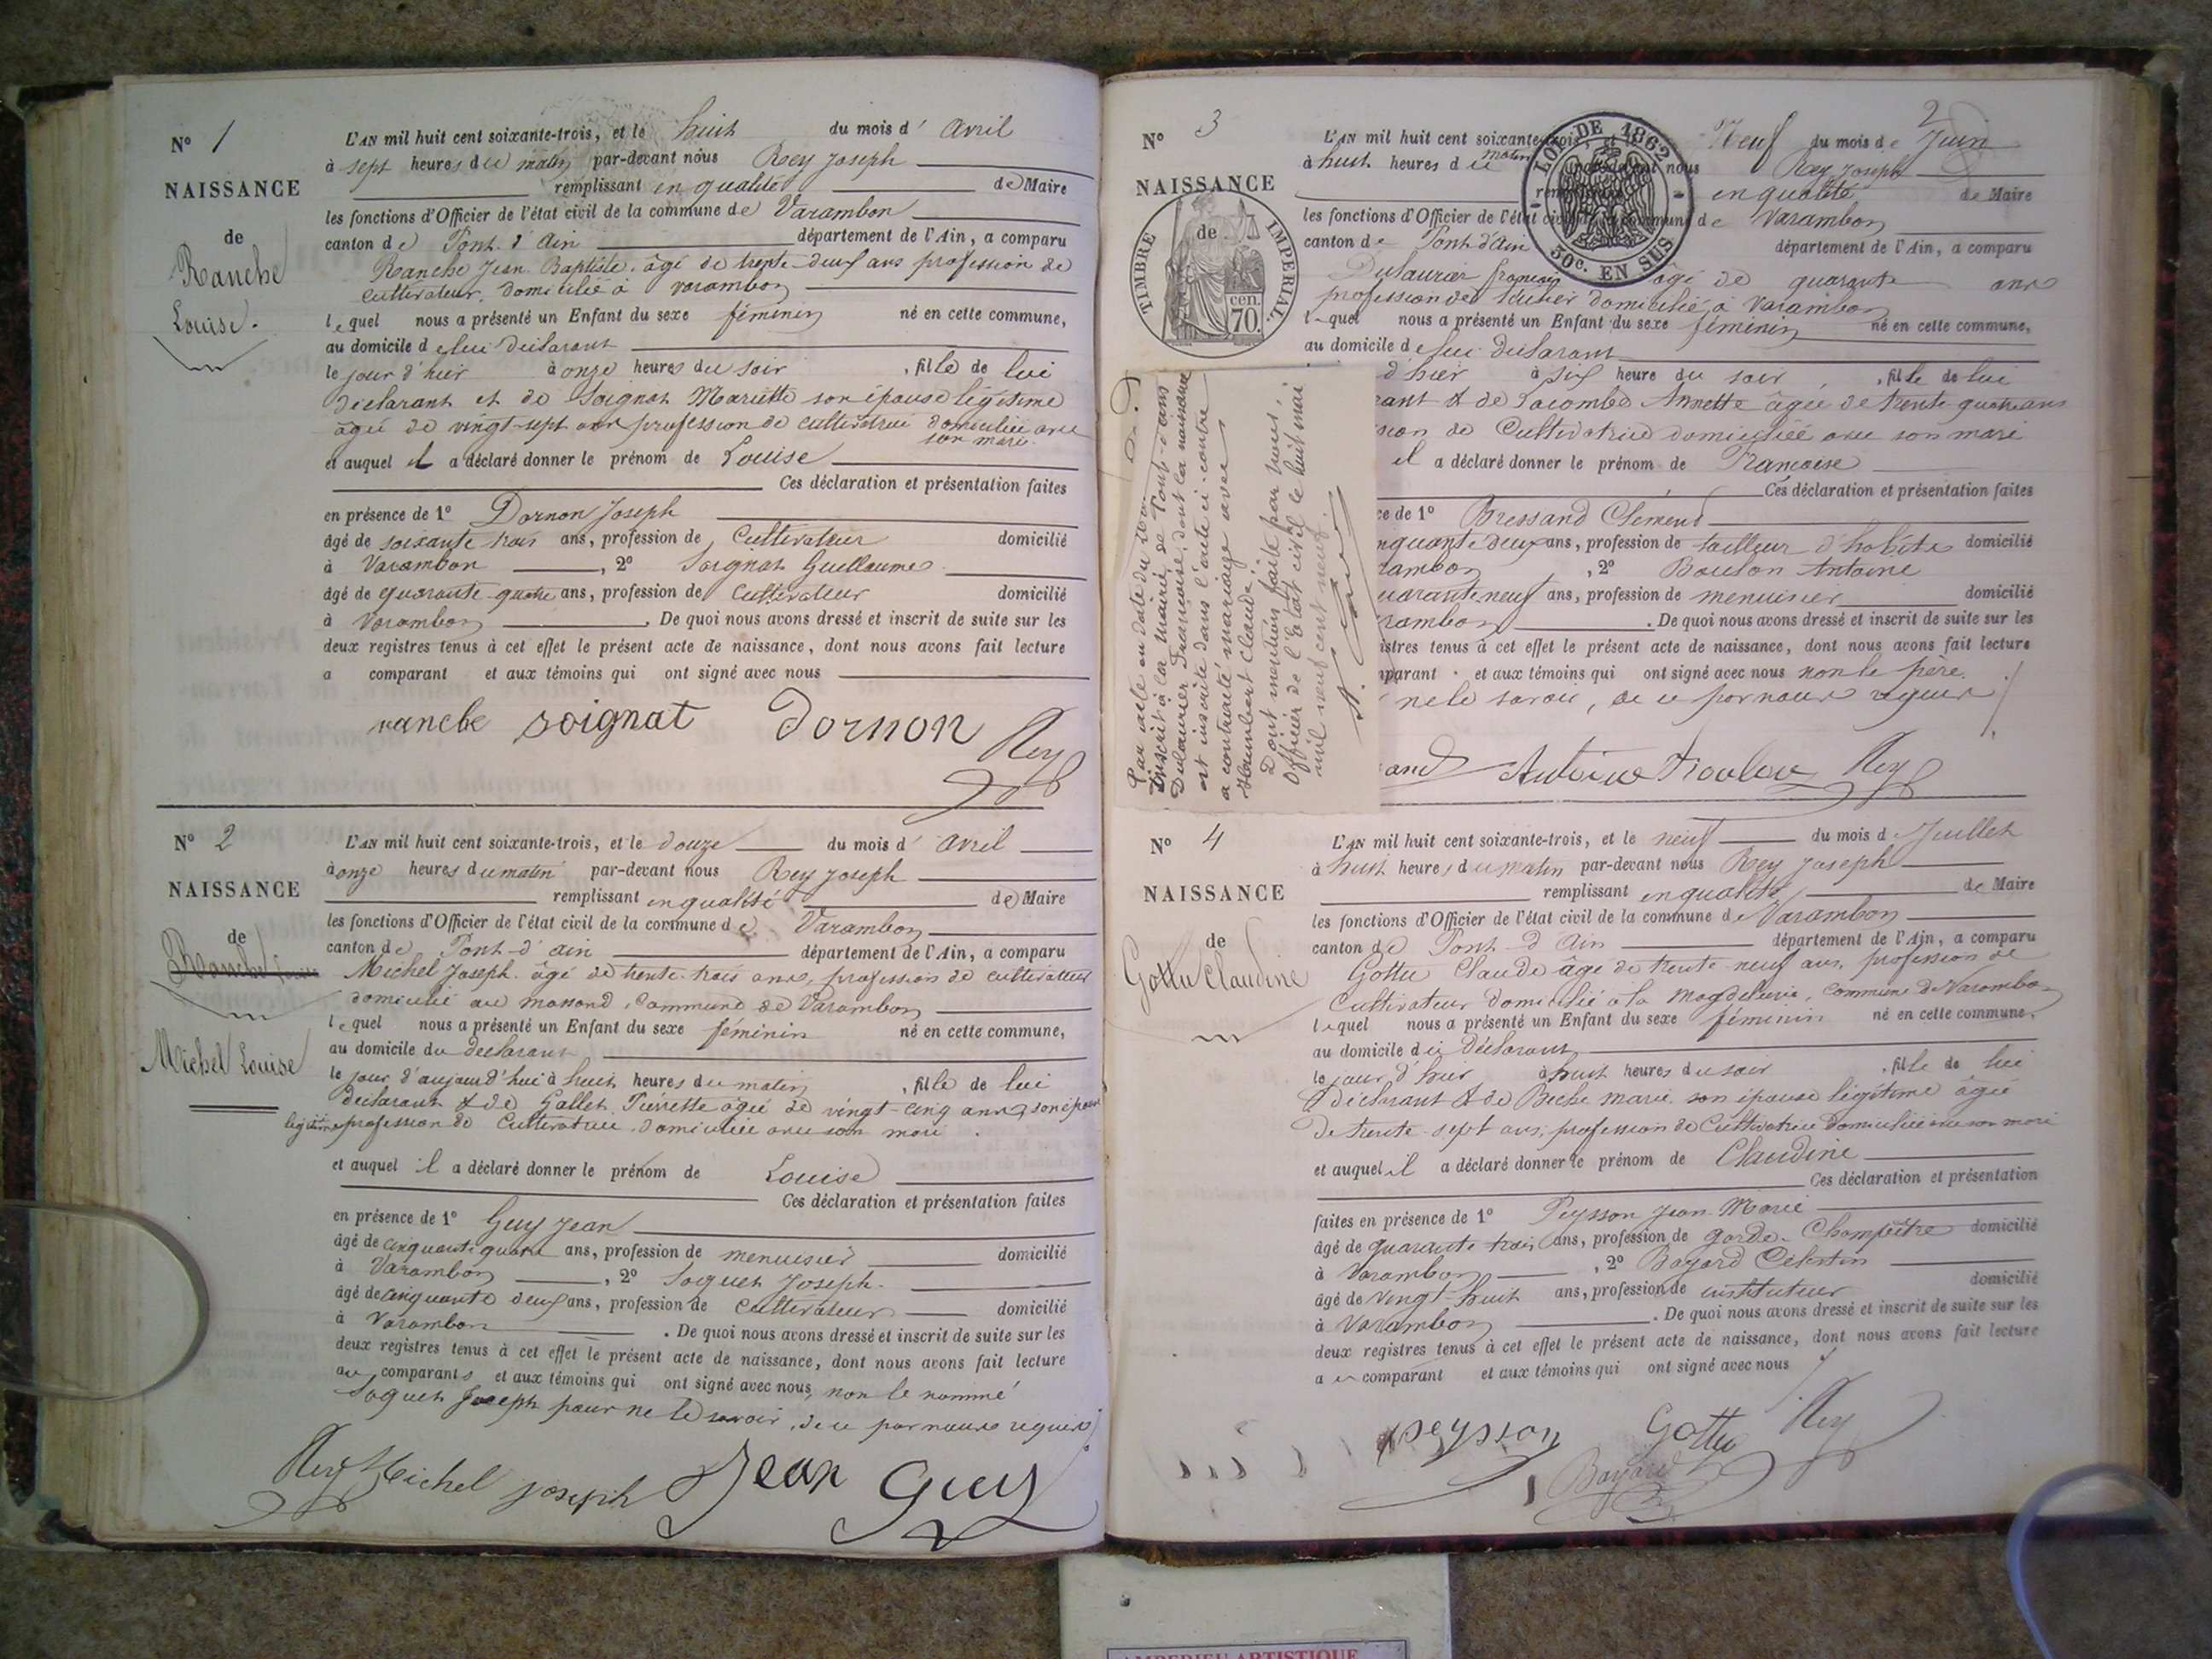 N° 1
NAISSANCE
de
Ranche
Louise.
L'AN mil huit cent soixante-trois, et le huit du mois d' avril
à sept heures du matin par-devant nous Rey Joseph
remplissant en qualité de Maire
les fonctions d'Officier de l'état civil de la commune de Varambon
canton de Pont d'Ain département de l'Ain, a comparu
Ranche Jean Baptiste, âgé de trente-deux ans profession de
cultivateur, domicilié à varambon
lequel nous a présenté un Enfant du sexe féminin né en cette commune,
au domicile de lui déclarant
le jour d'hier à onze heures du soir, fille de lui
déclarant et de Soignat Mariette son épouse légitime
âgée de vingt-sept ans profession de cultivatrice domiciliée avec
son mari
et auquel il a déclaré donner le prénom de Louise
Ces déclaration et présentation faites
en présence de 1° Dornon Joseph
âgé de soixante trois ans, profession de Cultivateur domicilié
à Varambon, 2° Soignat Guillaume
âgé de quarante-quatre ans, profession de Cultivateur domicilié
à Varambon. De quoi nous avons dressé et inscrit de suite sur les
deux registres tenus à cet effet le présent acte de naissance, dont nous avons fait lecture
a comparant et aux témoins qui ont signé avec nous
ranche soignat Dornon Rey
N° 2
NAISSANCE
de
Ranche Louise
Michel Louise
L'AN mil huit cent soixante-trois, et le douze du mois d' avril
à onze heures du matin par-devant nous Rey Joseph
remplissant en qualité de Maire
les fonctions d'Officier de l'état civil de la commune de Varambon
canton de Pont-d'ain département de l'Ain, a comparu
Michel Joseph âgé de trente-trois ans, profession de cultivateur
domicilié au commune de Varambon
lequel nous a présenté un Enfant du sexe féminin né en cette commune,
au domicile du déclarant
le jour d'aujourd'hui à huit heures du matin, fille de lui
déclarant & de Gallet Pierrette âgée de vingt-cinq ans, son épouse
légitime profession de Cultivatrice, domiciliée avec son mari
et auquel il a déclaré donner le prénom de Louise
Ces déclaration et présentation faites
en présence de 1° Guy Jean
âgé de cinquante quatre ans, profession de menuisier domicilié
à Varambon, 2° Joseph
âgé de cinquante deux ans, profession de cultivateur domicilié
à Varambon. De quoi nous avons dressé et inscrit de suite sur les
deux registres tenus à cet effet le présent acte de naissance, dont nous avons fait lecture
au comparants et aux témoins qui ont signé avec nous, non le nommé
Joseph pour ne le savoir, de ce par nous requis
Rey Michel joseph Jean Guy
2
N° 3
NAISSANCE
de
TIMBRE IMPERIAL.
cen. 70.
LOI DE 1862
50c. EN SUS
L'AN mil huit cent soixante-trois, et le Neuf du mois de Juin
à huit heures du matin par-devant nous Rey Joseph
remplissant en qualité de Maire
les fonctions d'Officier de l'état civil de la commune de Varambon
canton de Pont d'Ain département de l'Ain, a comparu
Dulaurier françois âgé de quarante ans
profession de domicilié à Varambon
lequel nous a présenté un Enfant du sexe féminin né en cette commune,
au domicile de lui déclarant
d'hier à six heure du soir, fille de lui
rant & de Lacombe Annette âgée de trente-quatre ans
sion de Cultivatrice domiciliée avec son mari
il a déclaré donner le prénom de Francoise
Ces déclaration et présentation faites
ce de 1° Bressand Clément
nquante deux ans, profession de tailleur d'habits domicilié
rambon, 2° Boulon Antoine
uarante neuf ans, profession de menuisier domicilié
rambon. De quoi nous avons dressé et inscrit de suite sur les
istres tenus à cet effet le présent acte de naissance, dont nous avons fait lecture
mparant et aux témoins qui ont signé avec nous non le père
ne le savoir, de ce par nous requis
and Antoine Boulon Rey
Par acte en date du
inscrit à la mairie de Pont-d'ain
Dulaurier Francoise, dont la naissance
est inscrite dans l'acte ci-contre
a contracté mariage avec
Humbert Claude.
Dont mention faite par nous,
Officier de l'Etat civil le huit mai
mil neuf cent neuf.
N° 4
NAISSANCE
de
Gottu Claudine
L'AN mil huit cent soixante-trois, et le neuf du mois d Juillet
à huit heures du matin par-devant nous Rey Joseph
remplissant en qualité de Maire
les fonctions d'Officier de l'état civil de la commune de Varambon
canton de Pont-d'Ain département de l'Ain, a comparu
Gottu Claude âgé de trente neuf ans, profession de
Cultivateur domicilié à la commune de Varambon
lequel nous a présenté un Enfant du sexe féminin né en cette commune,
au domicile du déclarant
le jour d'hier à huit heures du soir, fille de lui
déclarant & de Beche marie son épouse légitime âgée
de trente-sept ans, profession de Cultivatrice domiciliée avec son mari
et auquel il a déclaré donner le prénom de Claudine
Ces déclaration et présentation
faites en présence de 1° Peysson Jean-Marie
âgé de quarante trois ans, profession de garde-Champêtre domicilié
à Varambon, 2° Bayard Célestin
âgé de vingt-huit ans, profession de instituteur domicilié
à Varambon. De quoi nous avons dressé et inscrit de suite sur les
deux registres tenus à cet effet le présent acte de naissance, dont nous avons fait lecture
au comparant et aux témoins qui ont signé avec nous
peysson Gottu Rey
Bayard
AMBERIEU ARTISTIQUE